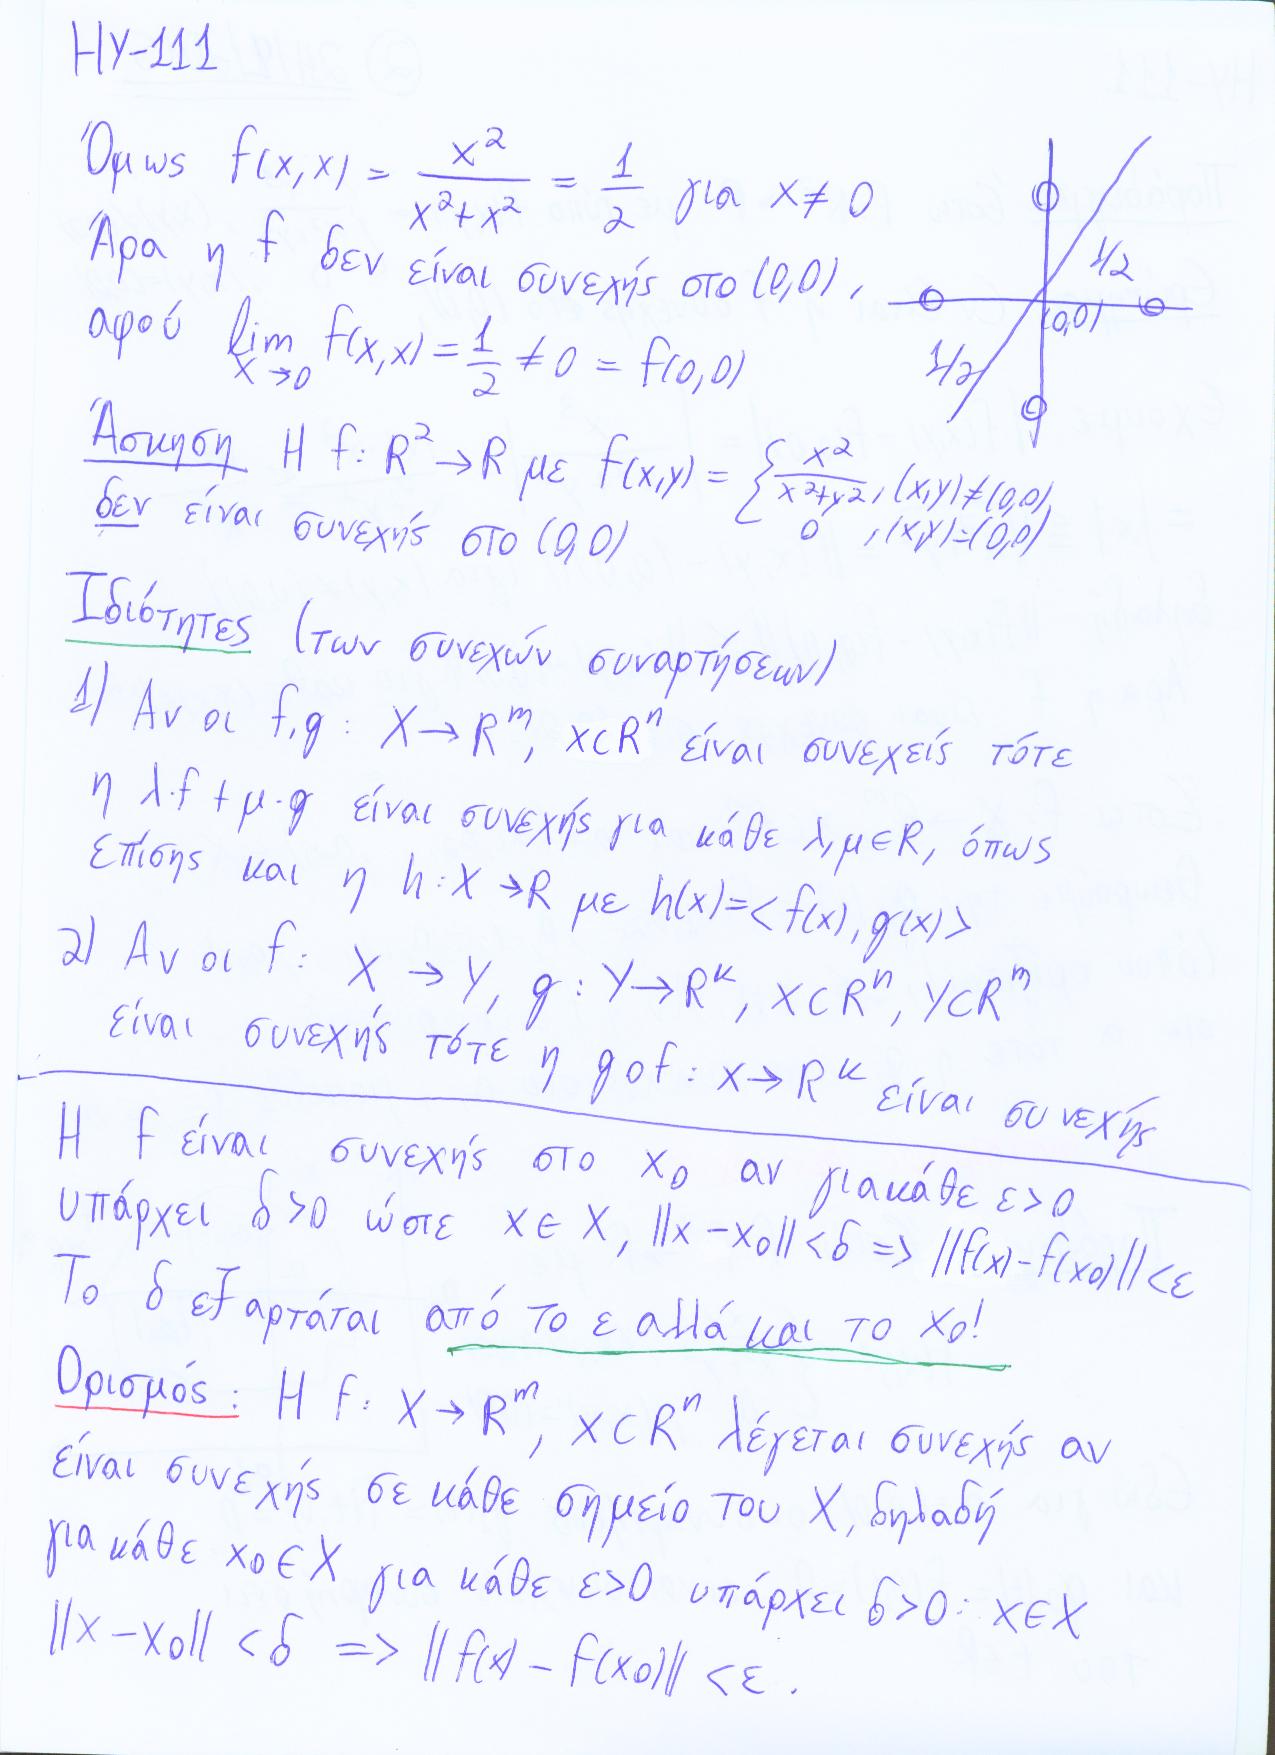 HY-111
Όμως f(x,x) = x²/(x²+x²) = 1/2 για x≠0
Άρα η f δεν είναι συνεχής στο (0,0),
αφού lim x→0 f(x,x) = 1/2 ≠ 0 = f(0,0)
1/2
(0,0)
1/2
Άσκηση Η f: R² → R με f(x,y) = { x²/(x²+y²), (x,y)≠(0,0)
0, (x,y)=(0,0)
δεν είναι συνεχής στο (0,0)
Ιδιότητες (των συνεχών συναρτήσεων)
1) Αν οι f,g: X → Rᵐ, X⊂Rⁿ είναι συνεχείς τότε
η λ·f + μ·g είναι συνεχής για κάθε λ,μ∈R, όπως
επίσης και η h: X → R με h(x) = <f(x), g(x)>
2) Αν οι f: X → Y, g: Y → Rᵏ, X⊂Rⁿ, Y⊂Rᵐ
είναι συνεχής τότε η gof: X → Rᵏ είναι συνεχής
Η f είναι συνεχής στο x₀ αν για κάθε ε>0
υπάρχει δ>0 ώστε x∈X, ||x-x₀||<δ => ||f(x)-f(x₀)||<ε
Το δ εξαρτάται από το ε αλλά και το x₀!
Ορισμός: Η f: X → Rᵐ, X⊂Rⁿ λέγεται συνεχής αν
είναι συνεχής σε κάθε σημείο του X, δηλαδή
για κάθε x₀∈X για κάθε ε>0 υπάρχει δ>0: x∈X
||x-x₀|| <δ => ||f(x) - f(x₀)|| <ε.